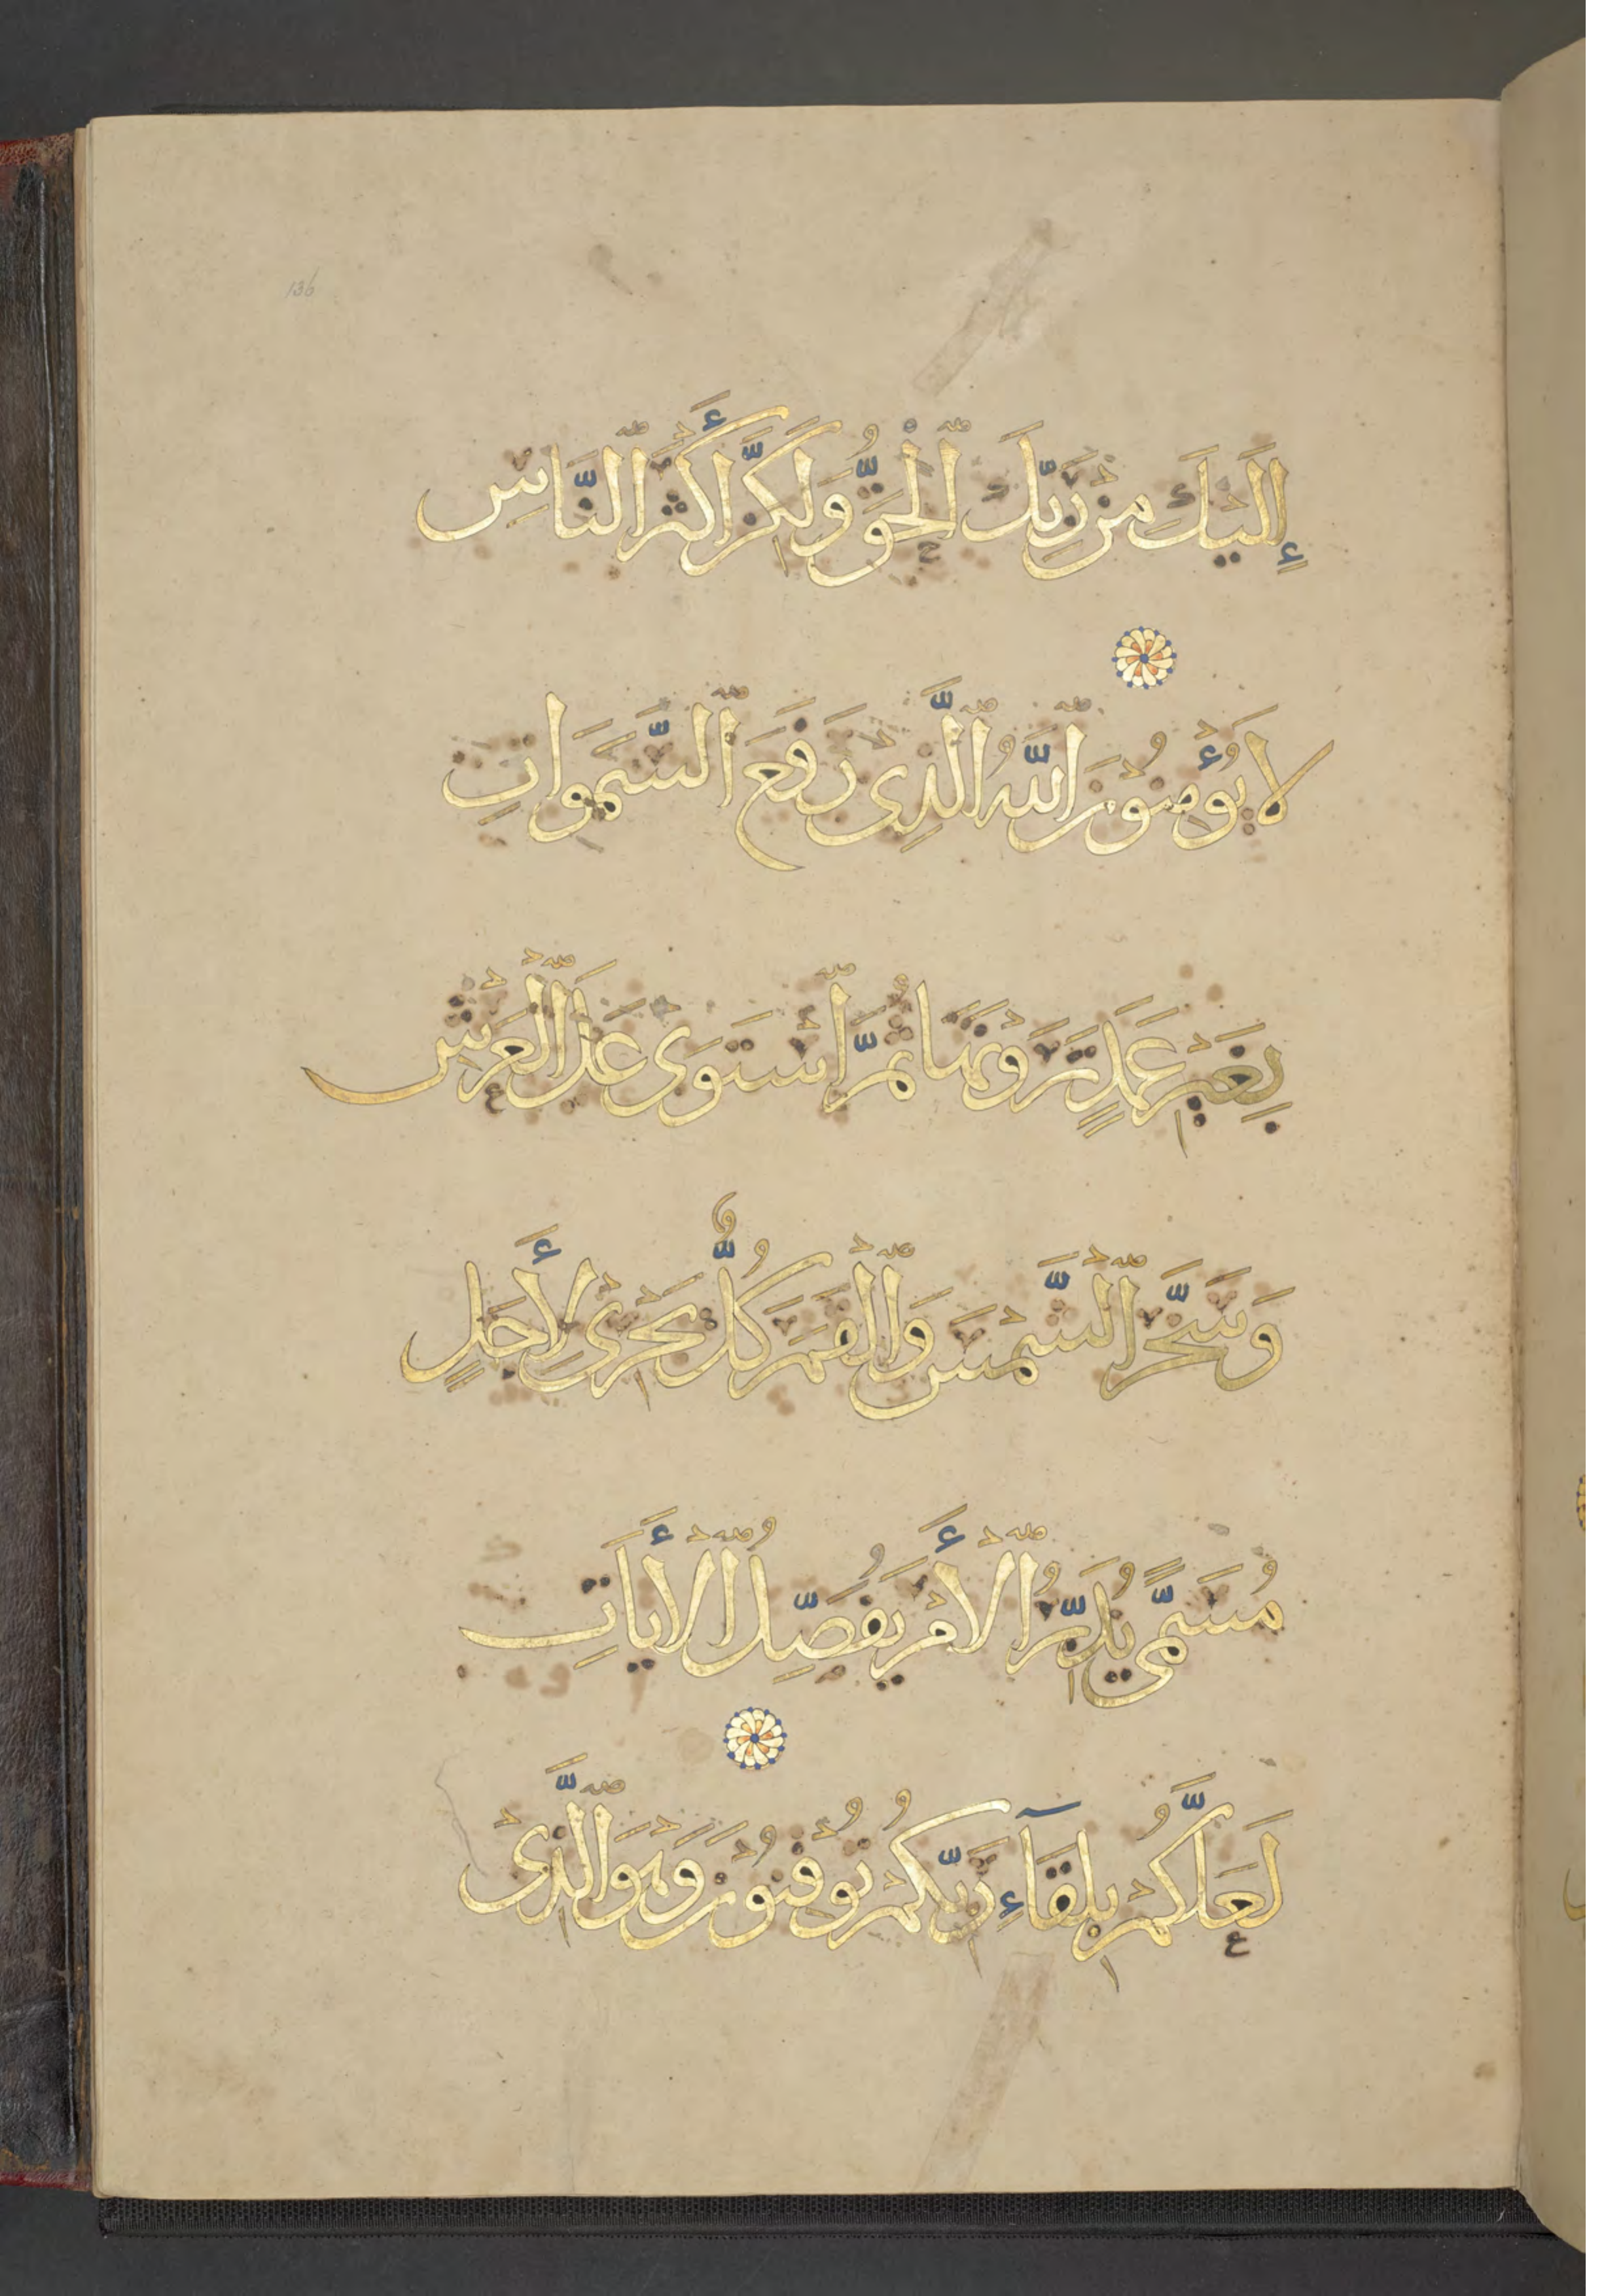 136
إِلَيْكَ مِنْ رَبِّكَ ٱلْحَقُّ وَلَكِنَّ أَكْثَرَ ٱلنَّاسِ
لَا يُؤْمِنُونَ ٱللَّهُ ٱلَّذِي رَفَعَ ٱلسَّمَوَاتِ
بِغَيْرِ عَمَدٍ تَرَوْنَهَا ثُمَّ ٱسْتَوَى عَلَى ٱلْعَرْشِ
وَسَخَّرَ ٱلشَّمْسَ وَٱلْقَمَرَ كُلٌّ يَجْرِي لِأَجَلٍ
مُسَمًّى يُدَبِّرُ ٱلْأَمْرَ يُفَصِّلُ ٱلْأَيَاتِ
لَعَلَّكُمْ بِلِقَآءِ رَبِّكُمْ تُوقِنُونَ وَهُوَ ٱلَّذِي